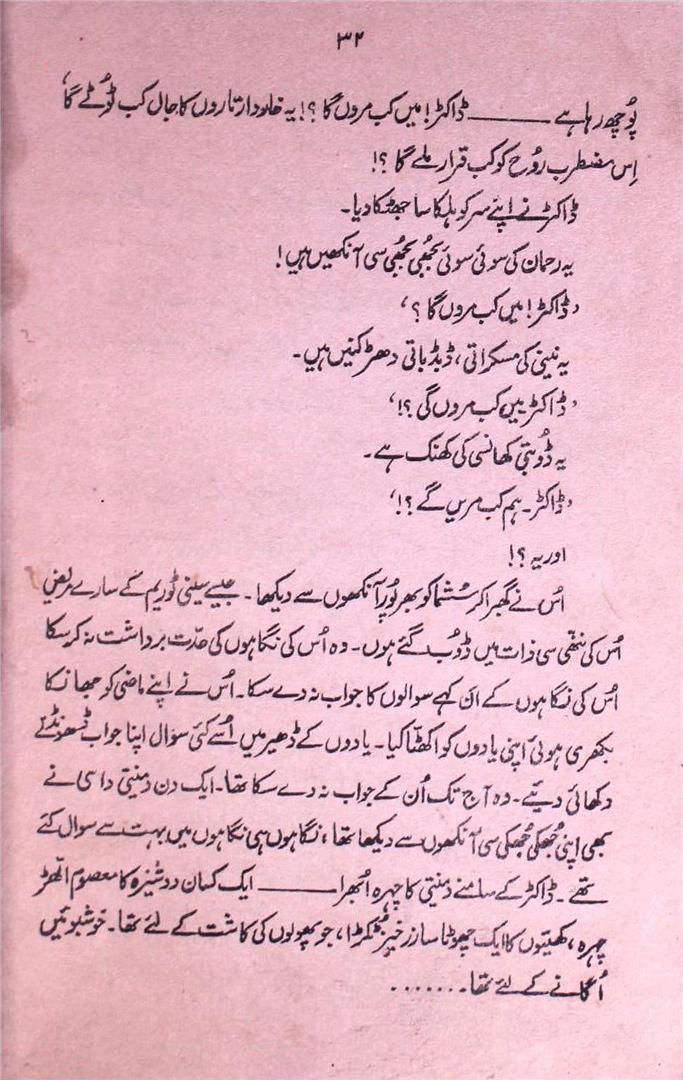 ۳۲
پُوچھ رہا ہے ــــــــ ڈاکٹر! میں کب مروں گا ؟! یہ خاردار تاروں کا جال کب ٹوُٹے گا'
اِس مضطرب رُوح کو کب قرار ملے گا ؟!
ڈاکٹر نے اپنے سر کو ہلکا سا جھٹکا دیا۔
یہ رحمان کی سوئی سوئی بُجھی بُجھی سی آنکھیں ہیں !
'ڈاکٹر! میں کب مروں گا ؟'
یہ نینی کی مسکراتی، ڈبڈباتی دھڑکنیں ہیں۔
'ڈاکٹر میں کب مروں گی ؟!'
یہ ڈوُبتی کھانسی کی کھنک ہے۔
'ڈاکٹر۔ ہم کب مریں گے ؟!'
اور یہ ؟!
اُس نے گھبرا کر سُشما کو بھرپُور آنکھوں سے دیکھا۔ جیسے سینی ٹوریم کے سارے مریض
اُس کی ننھّی سی ذات میں ڈوُب گئے ہوں۔ وہ اُس کی نگاہوں کی حدّت برداشت نہ کر سکا
اُس کی نگاہوں کے ان کہے سوالوں کا جواب نہ دے سکا۔ اُس نے اپنے ماضی کو جھانکا
بکھری ہوئی اپنی یادوں کو اکھٹّا کیا۔ یادوں کے ڈھیر میں اُسے کئی سوال اپنا جواب ڈھونڈتے
دکھائی دیئے۔ وہ آج تک اُن کے جواب نہ دے سکا تھا۔ ایک دن دمنیتی داسی نے
بھی اپنی جُھکی جُھکی سی آنکھوں سے دیکھا تھا، نگاہوں ہی نگاہوں میں بہت سے سوال کئے
تھے۔ ڈاکٹر کے سامنے دمنیتی کا چہرہ اُبھرا ــــــــ ایک کسان دوشیزہ کا معصوم الھّڑ
چہرہ، کھیتوں کا ایک چھوٹا سا زرخیز ٹُکڑا، جو پھولوں کی کاشت کے لئے تھا۔ خوشبوئیں
اُگانے کے لئے تھا۔.......